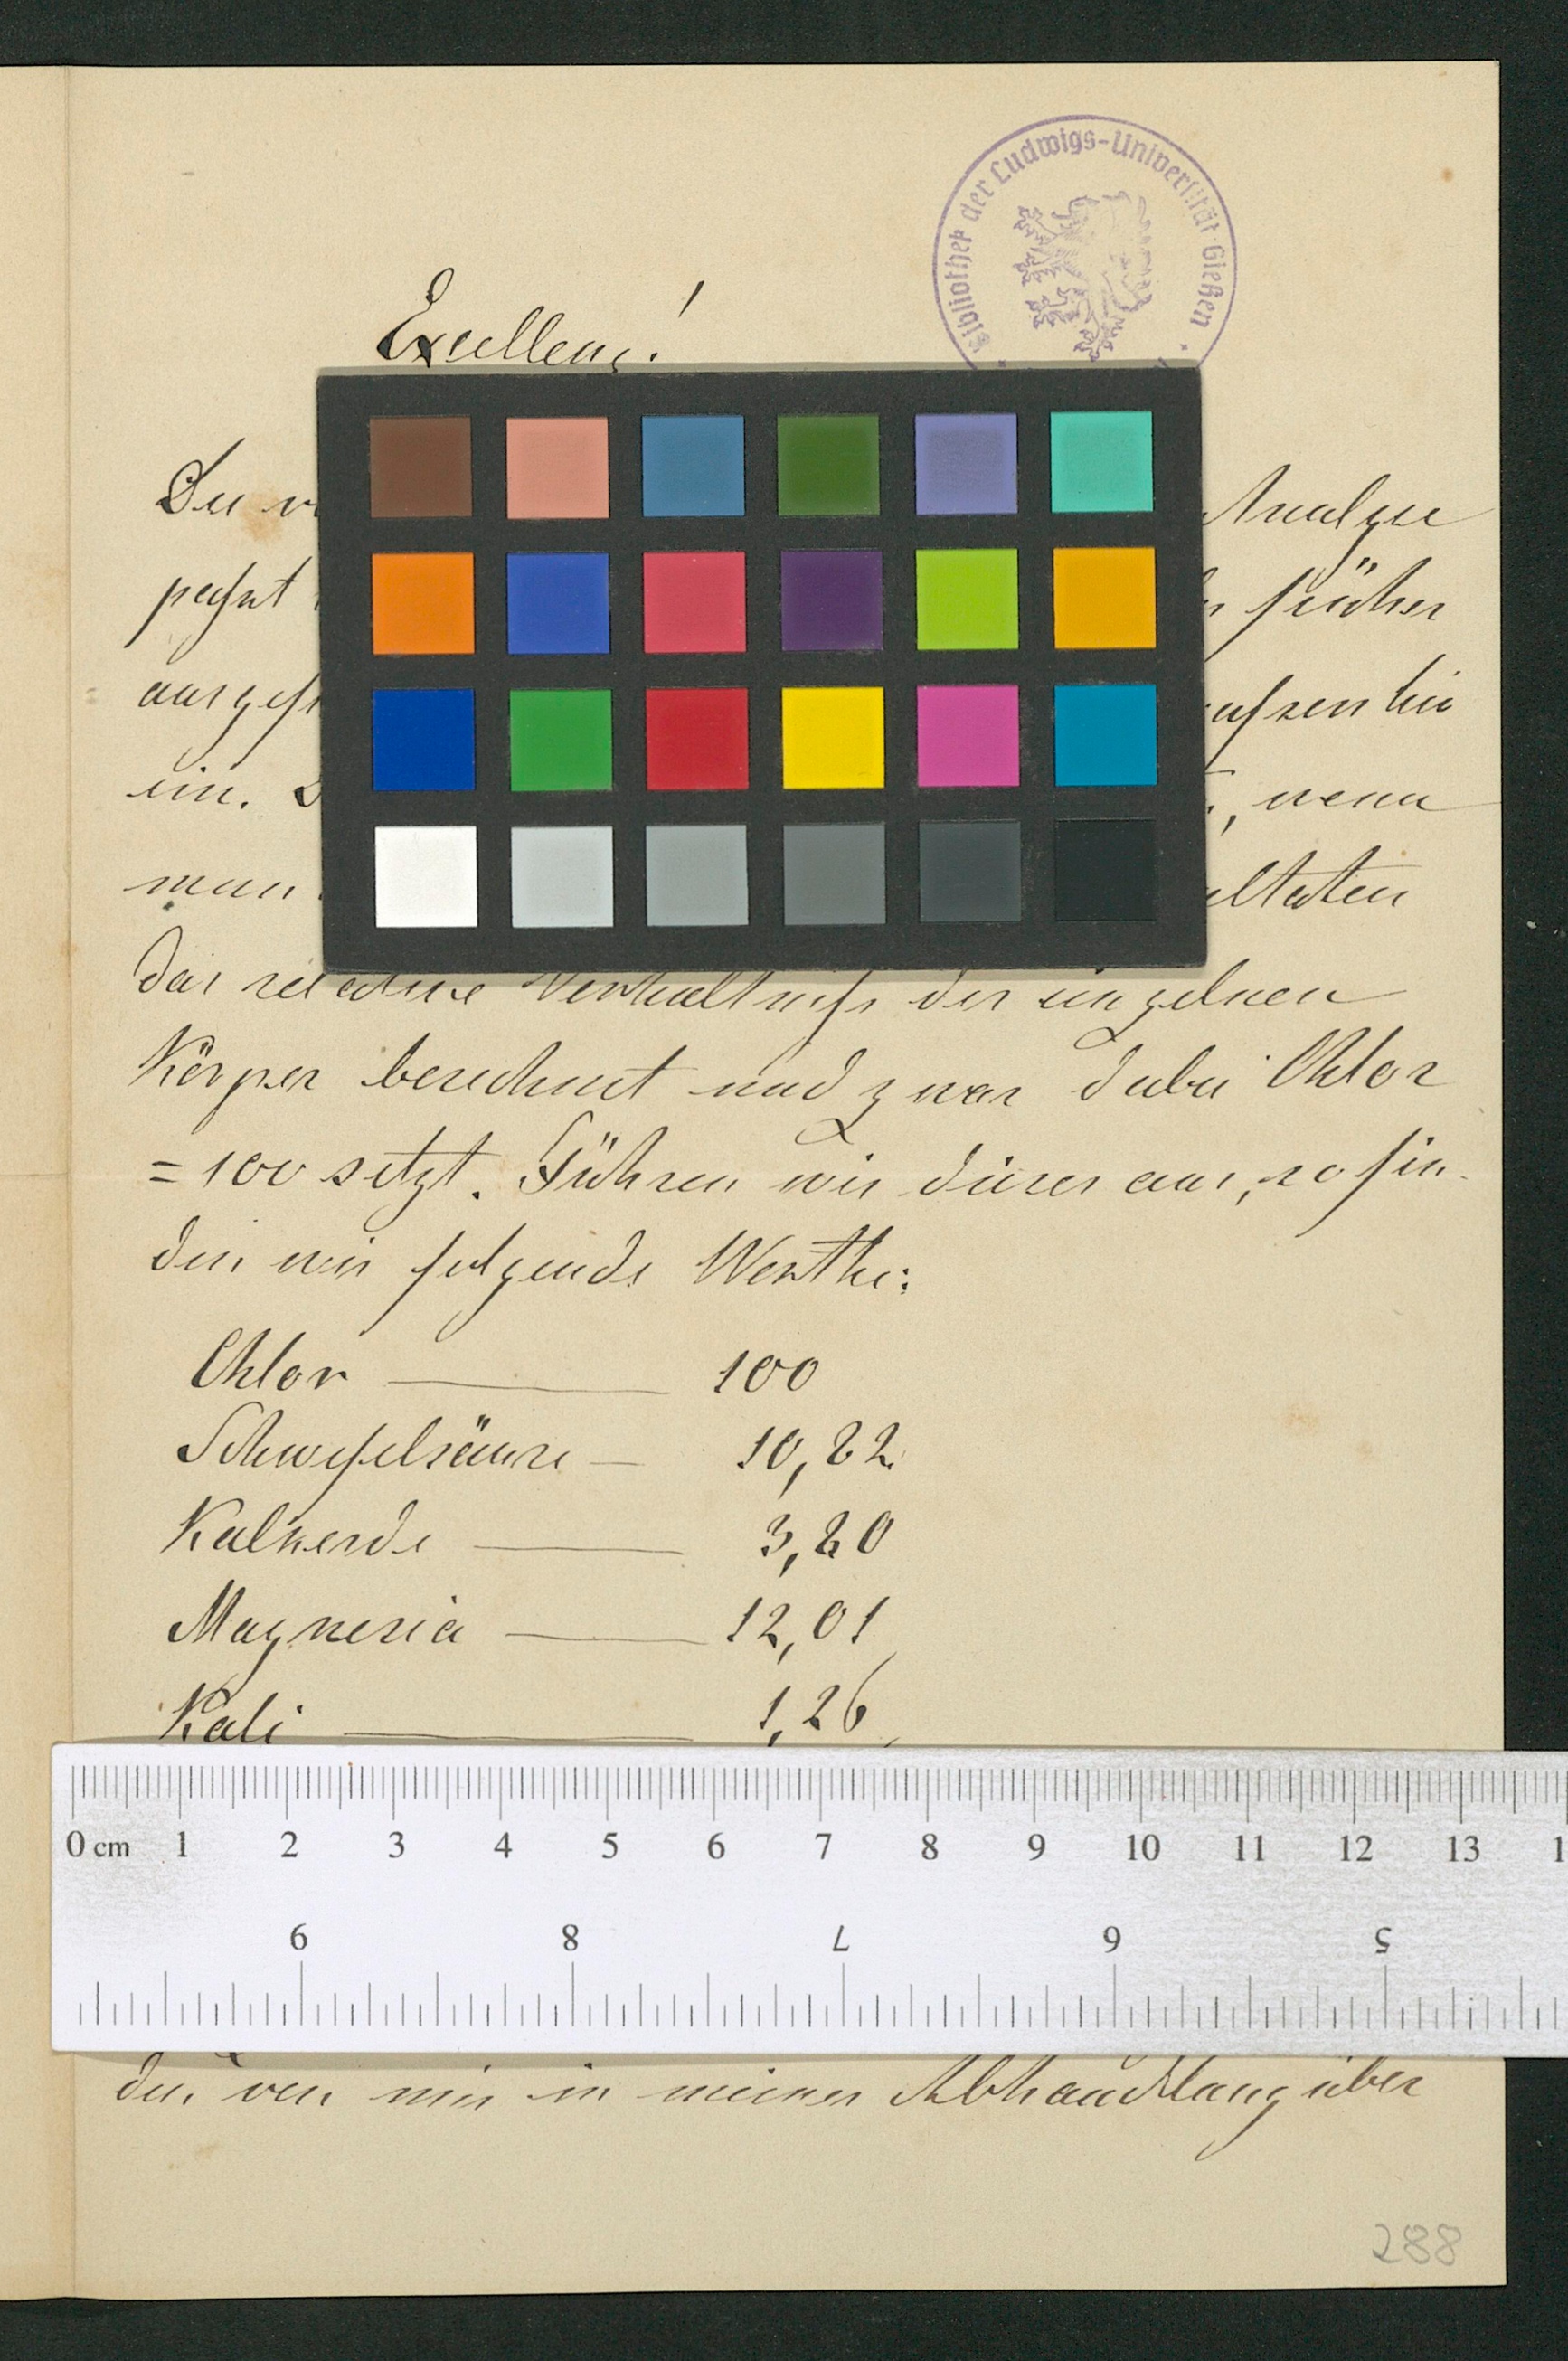 Bibliothek der Ludwigs-Universität Gießen
Excellenz!
Die Analyse
paßt früher
ein. wenn
man
das relative Verhältniß der einzelnen
Körper berechnet und zwar dabei Chlor
= 100 setzt. Führen wir dieses aus, so fin-
den wir folgende Werthe:
Chlor — 100
Schwefelsäure — 10,22
Kalkerde — 3,20
Magnesia — 12,01
Kali — 1,26
0 cm 1 2 3 4 5 6 7 8 9 10 11 12 13
9 8 7 6 5
von mir in meiner Abhandlung über
288